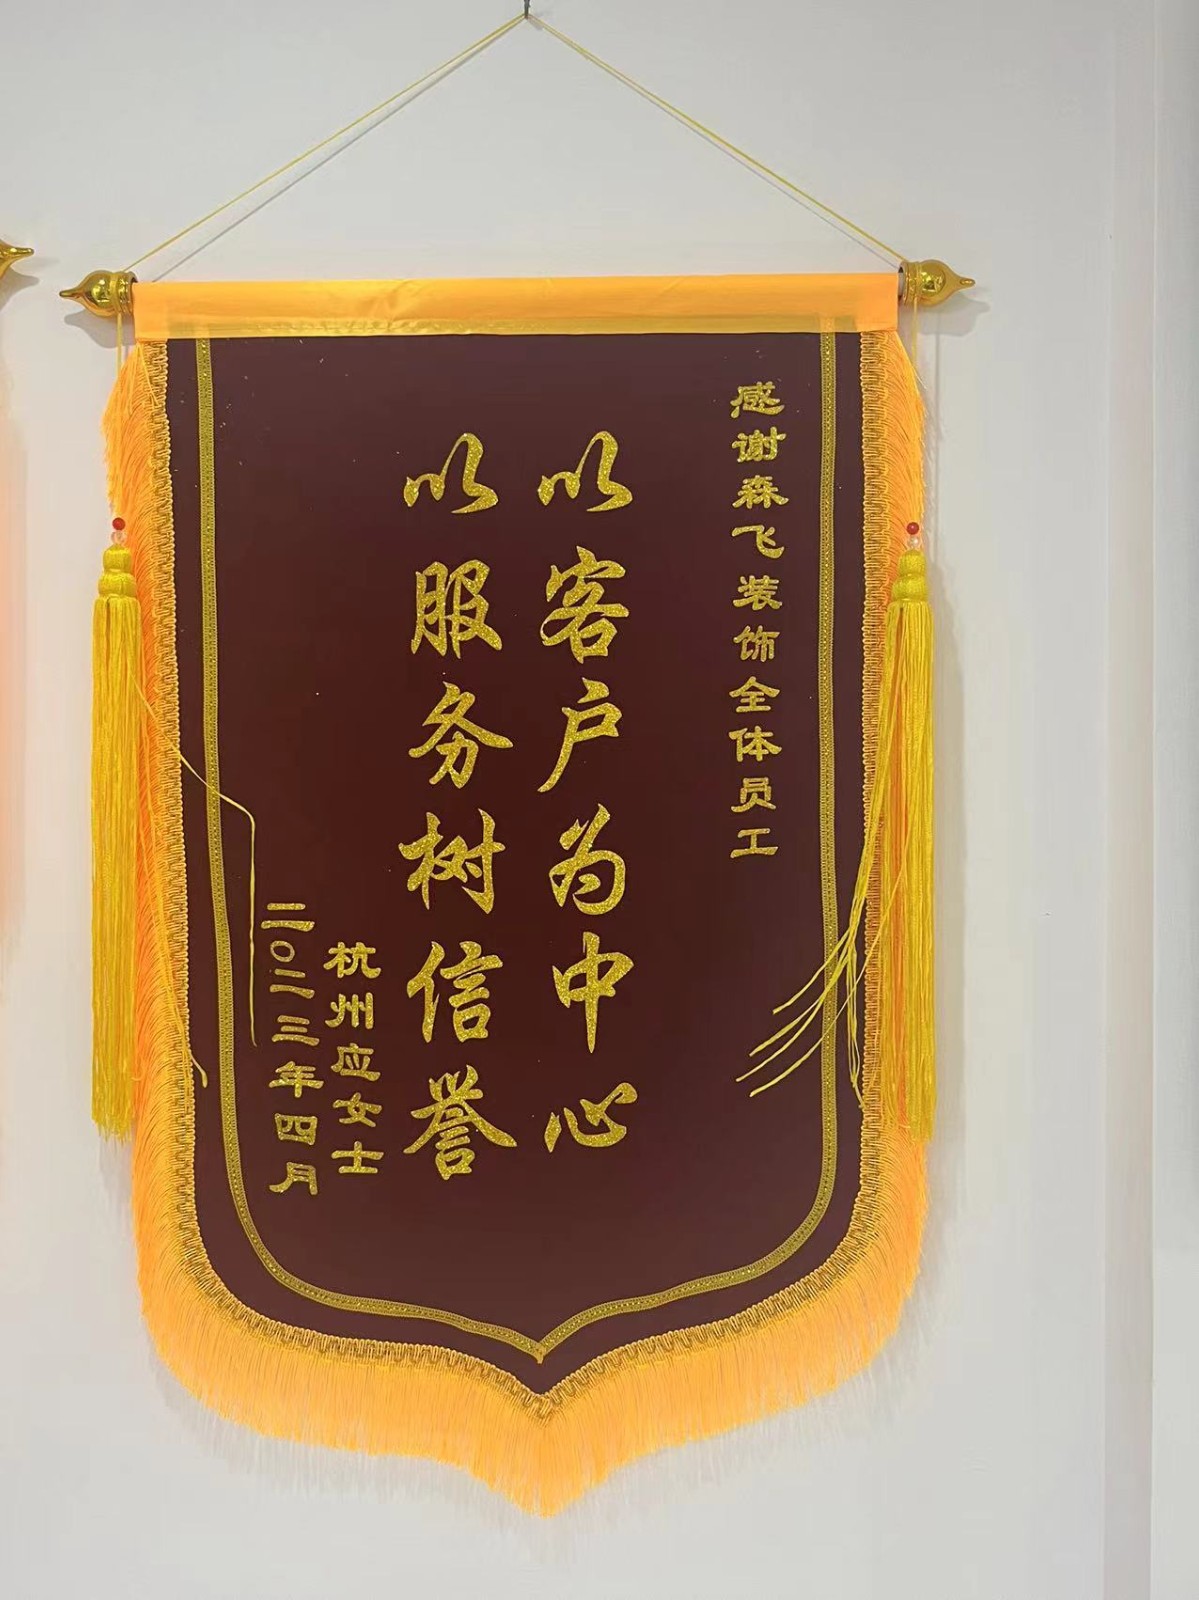 感谢森飞装饰全体员工
以客户为中心
以服务树信誉
杭州应女士
二〇二三年四月